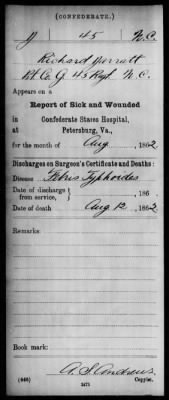 (CONFEDERATE.)
45 N.C.
Richard
Pvt Co. G, 45 Regt N.C.
Appears on a
Report of Sick and Wounded
in Confederate States Hospital,
at Petersburg, Va.,
for the month of Aug, 1862
Discharges on Surgeon's Certificate and Deaths:
Disease Febris Typhoides
Date of discharge from service, , 186
Date of death Aug 12, 1862
Remarks:
Book mark:
A. S. Andrews
(646) 2471 Copyist.